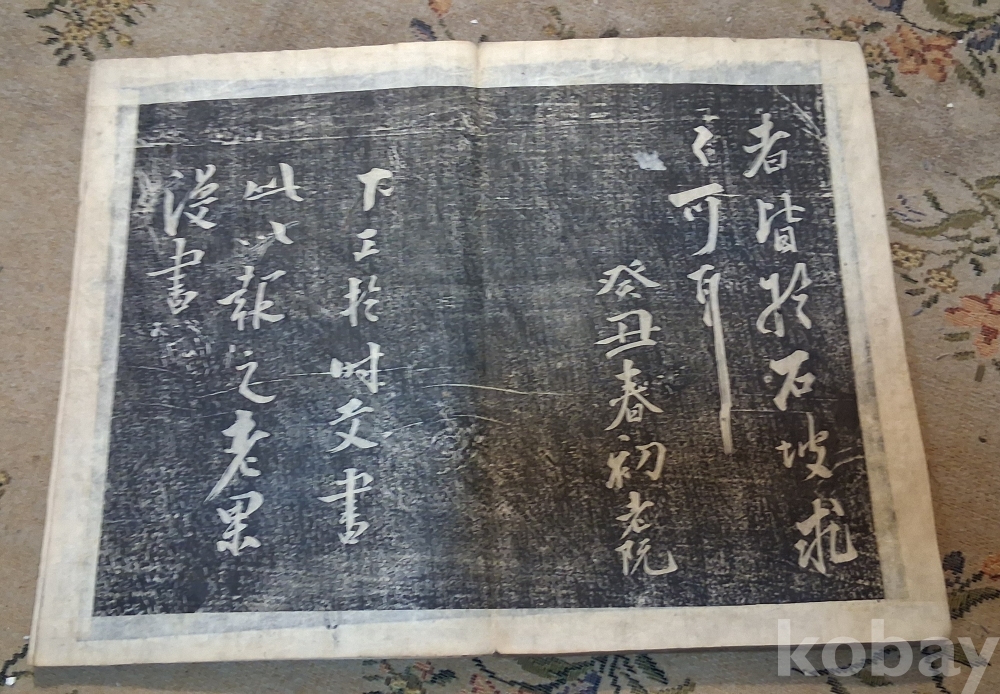 者皆於石坡求
之可耳
癸丑春初老阮
於时文書
此以報之老果
漫書
kobay